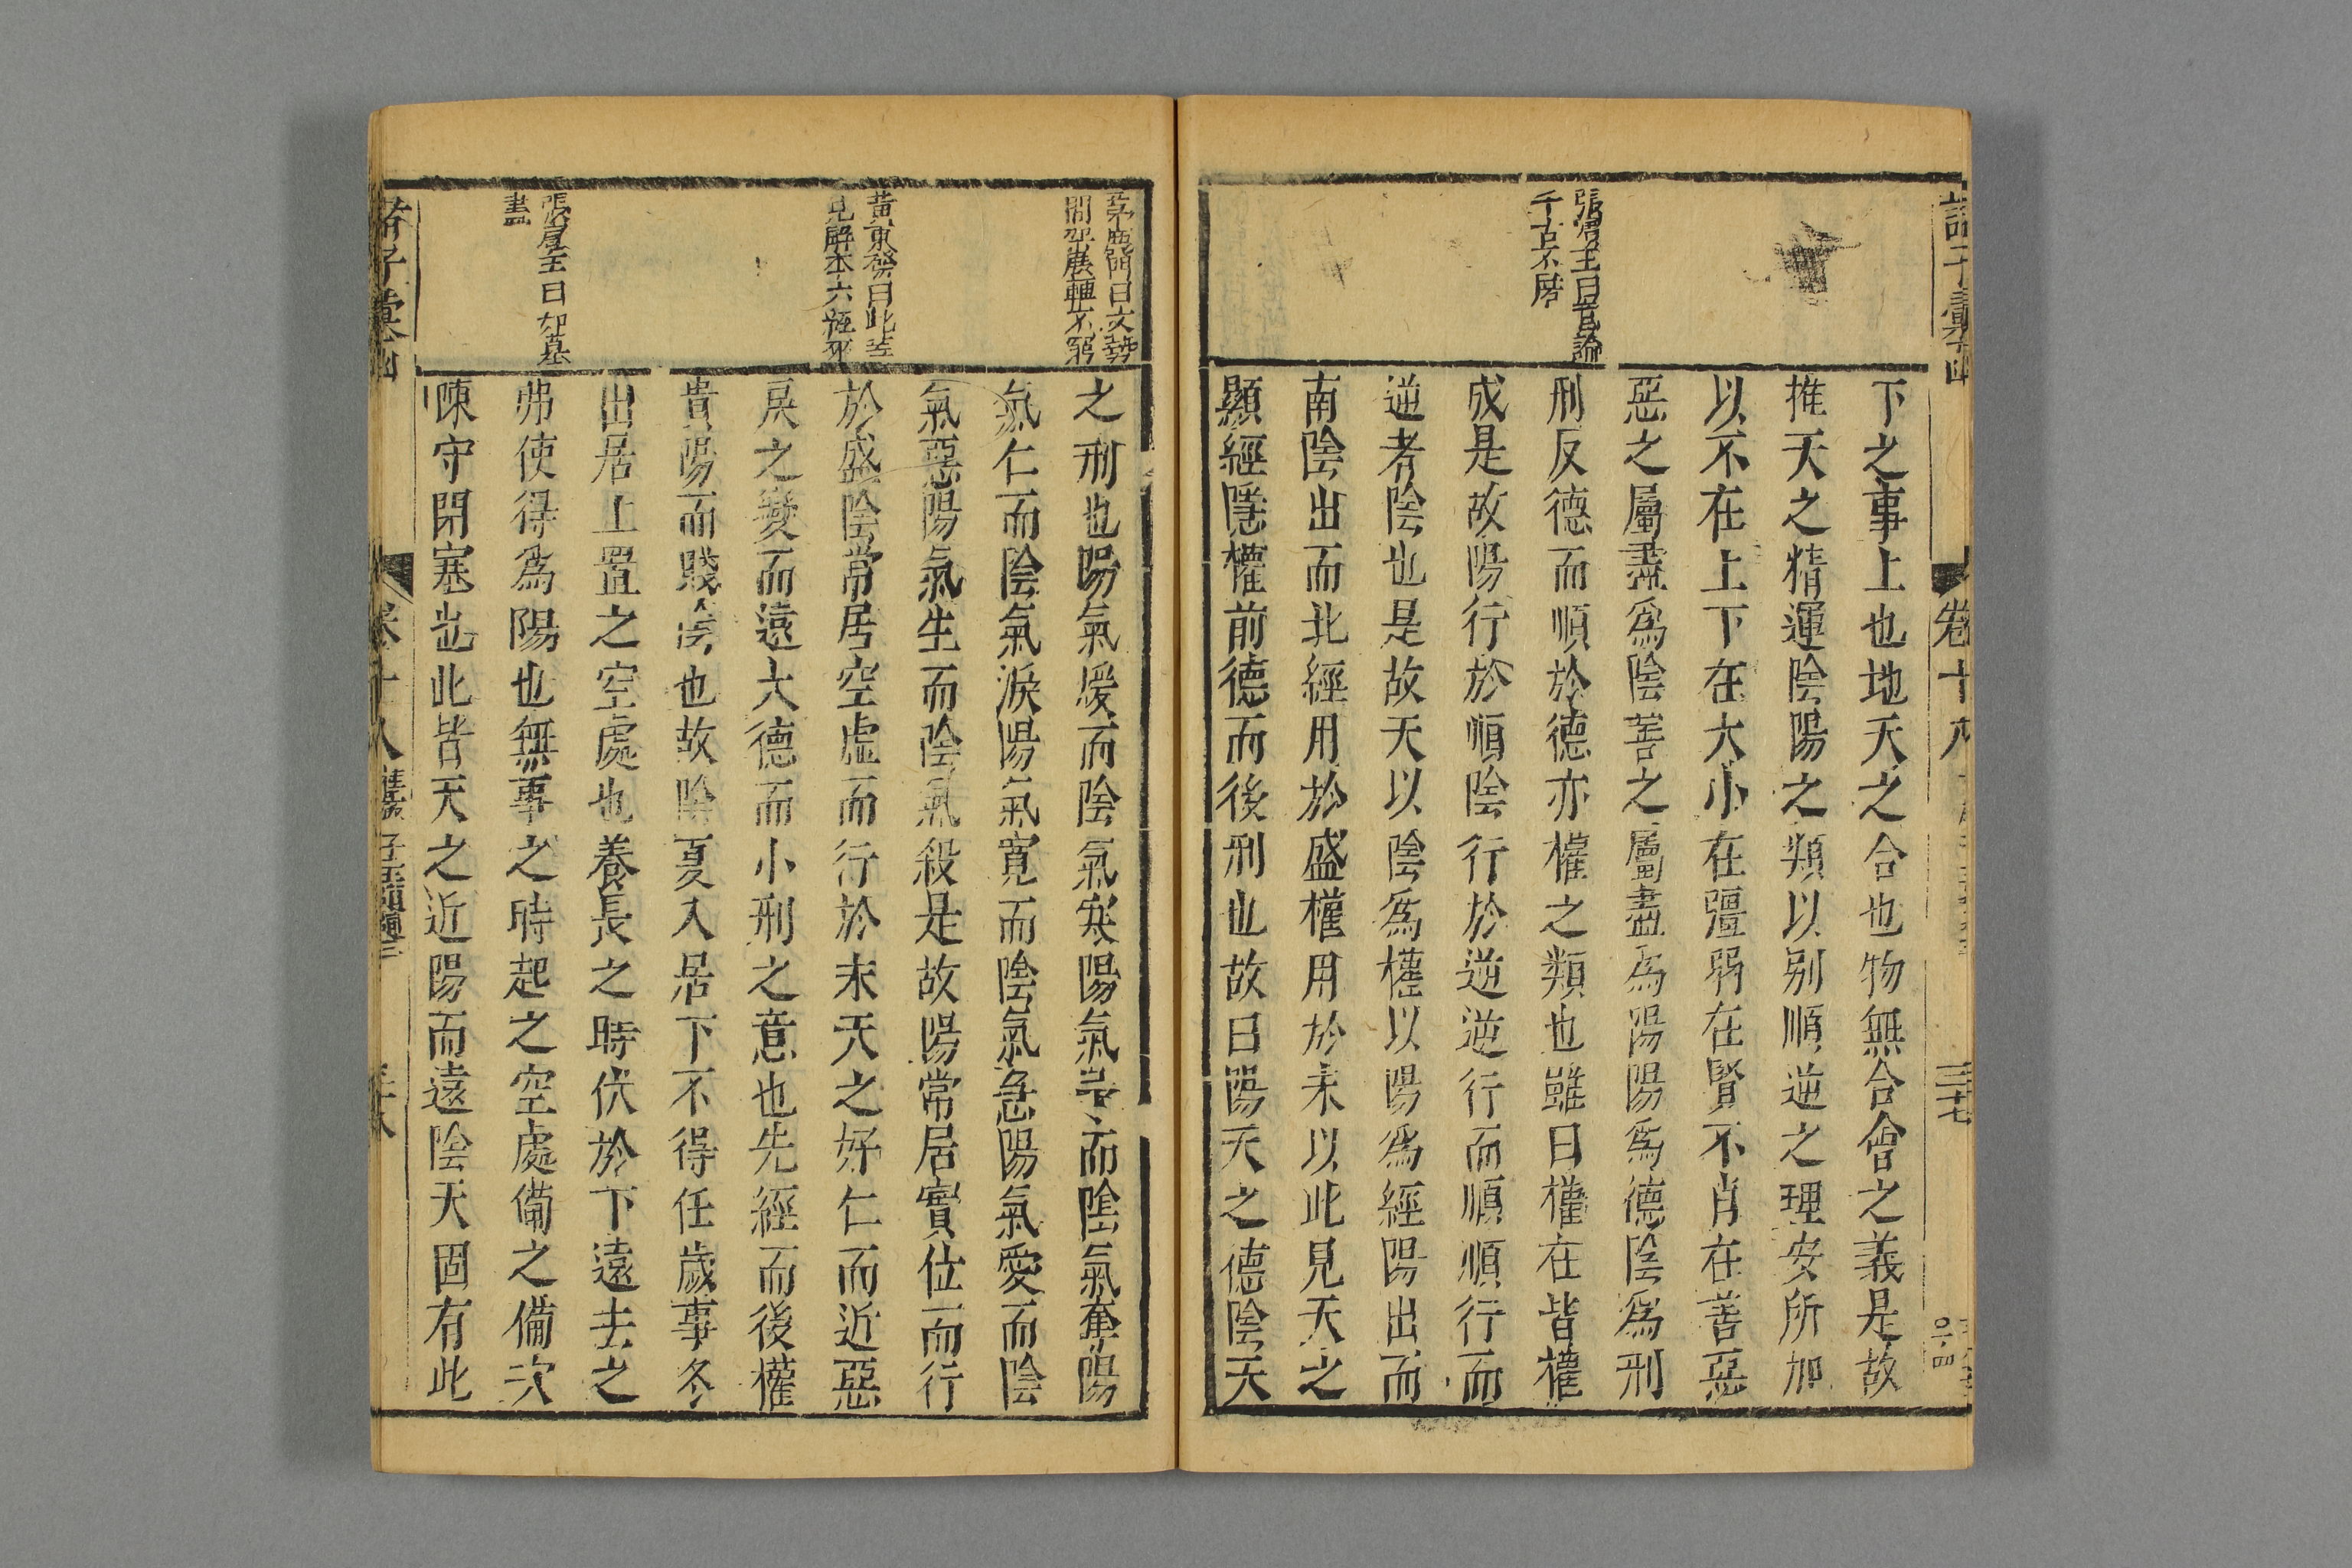 諸子彙函
卷十八
三十七
張賓王曰菅論
千古不磨
下之事上也地天之合也物無合會之義是故
推天之精運陰陽之類以别順逆之理安所加
以不在上下在大小在彊弱在賢不肖在善惡
惡之屬盡爲陰善之屬盡爲陽陽爲德陰爲刑
刑反德而順於德亦權之類也雖曰權在皆權
成是故陽行於順陰行於逆逆行而順順行而
逆者陰也是故天以陰爲權以陽爲經陽出而
南陰出而北經用於盛權用於末以此見天之
顯經隱權前德而後刑也故曰陽天之德陰天
茅鹿門曰文勢
開架展轉不窮
黃東發曰此等
見解本六經來
張賓王曰如墓
畫
之刑也陽氣煖而陰氣寒陽氣予而陰氣奪陽
氣仁而陰氣淚陽氣寬而陰氣急陽氣愛而陰
氣惡陽氣生而陰氣殺是故陽常居實位而行
於盛陰常居空虛而行於末天之好仁而近惡
戾之變而遠大德而小刑之意也先經而後權
貴陽而賤陰也故陰夏入居下不得任歲事冬
出居上置之空處也養長之時伏於下遠去之
弗使得爲陽也無事之時起之空處備之備次
陳守閉塞也此皆天之近陽而遠陰天固有此
諸子彙函
卷十八